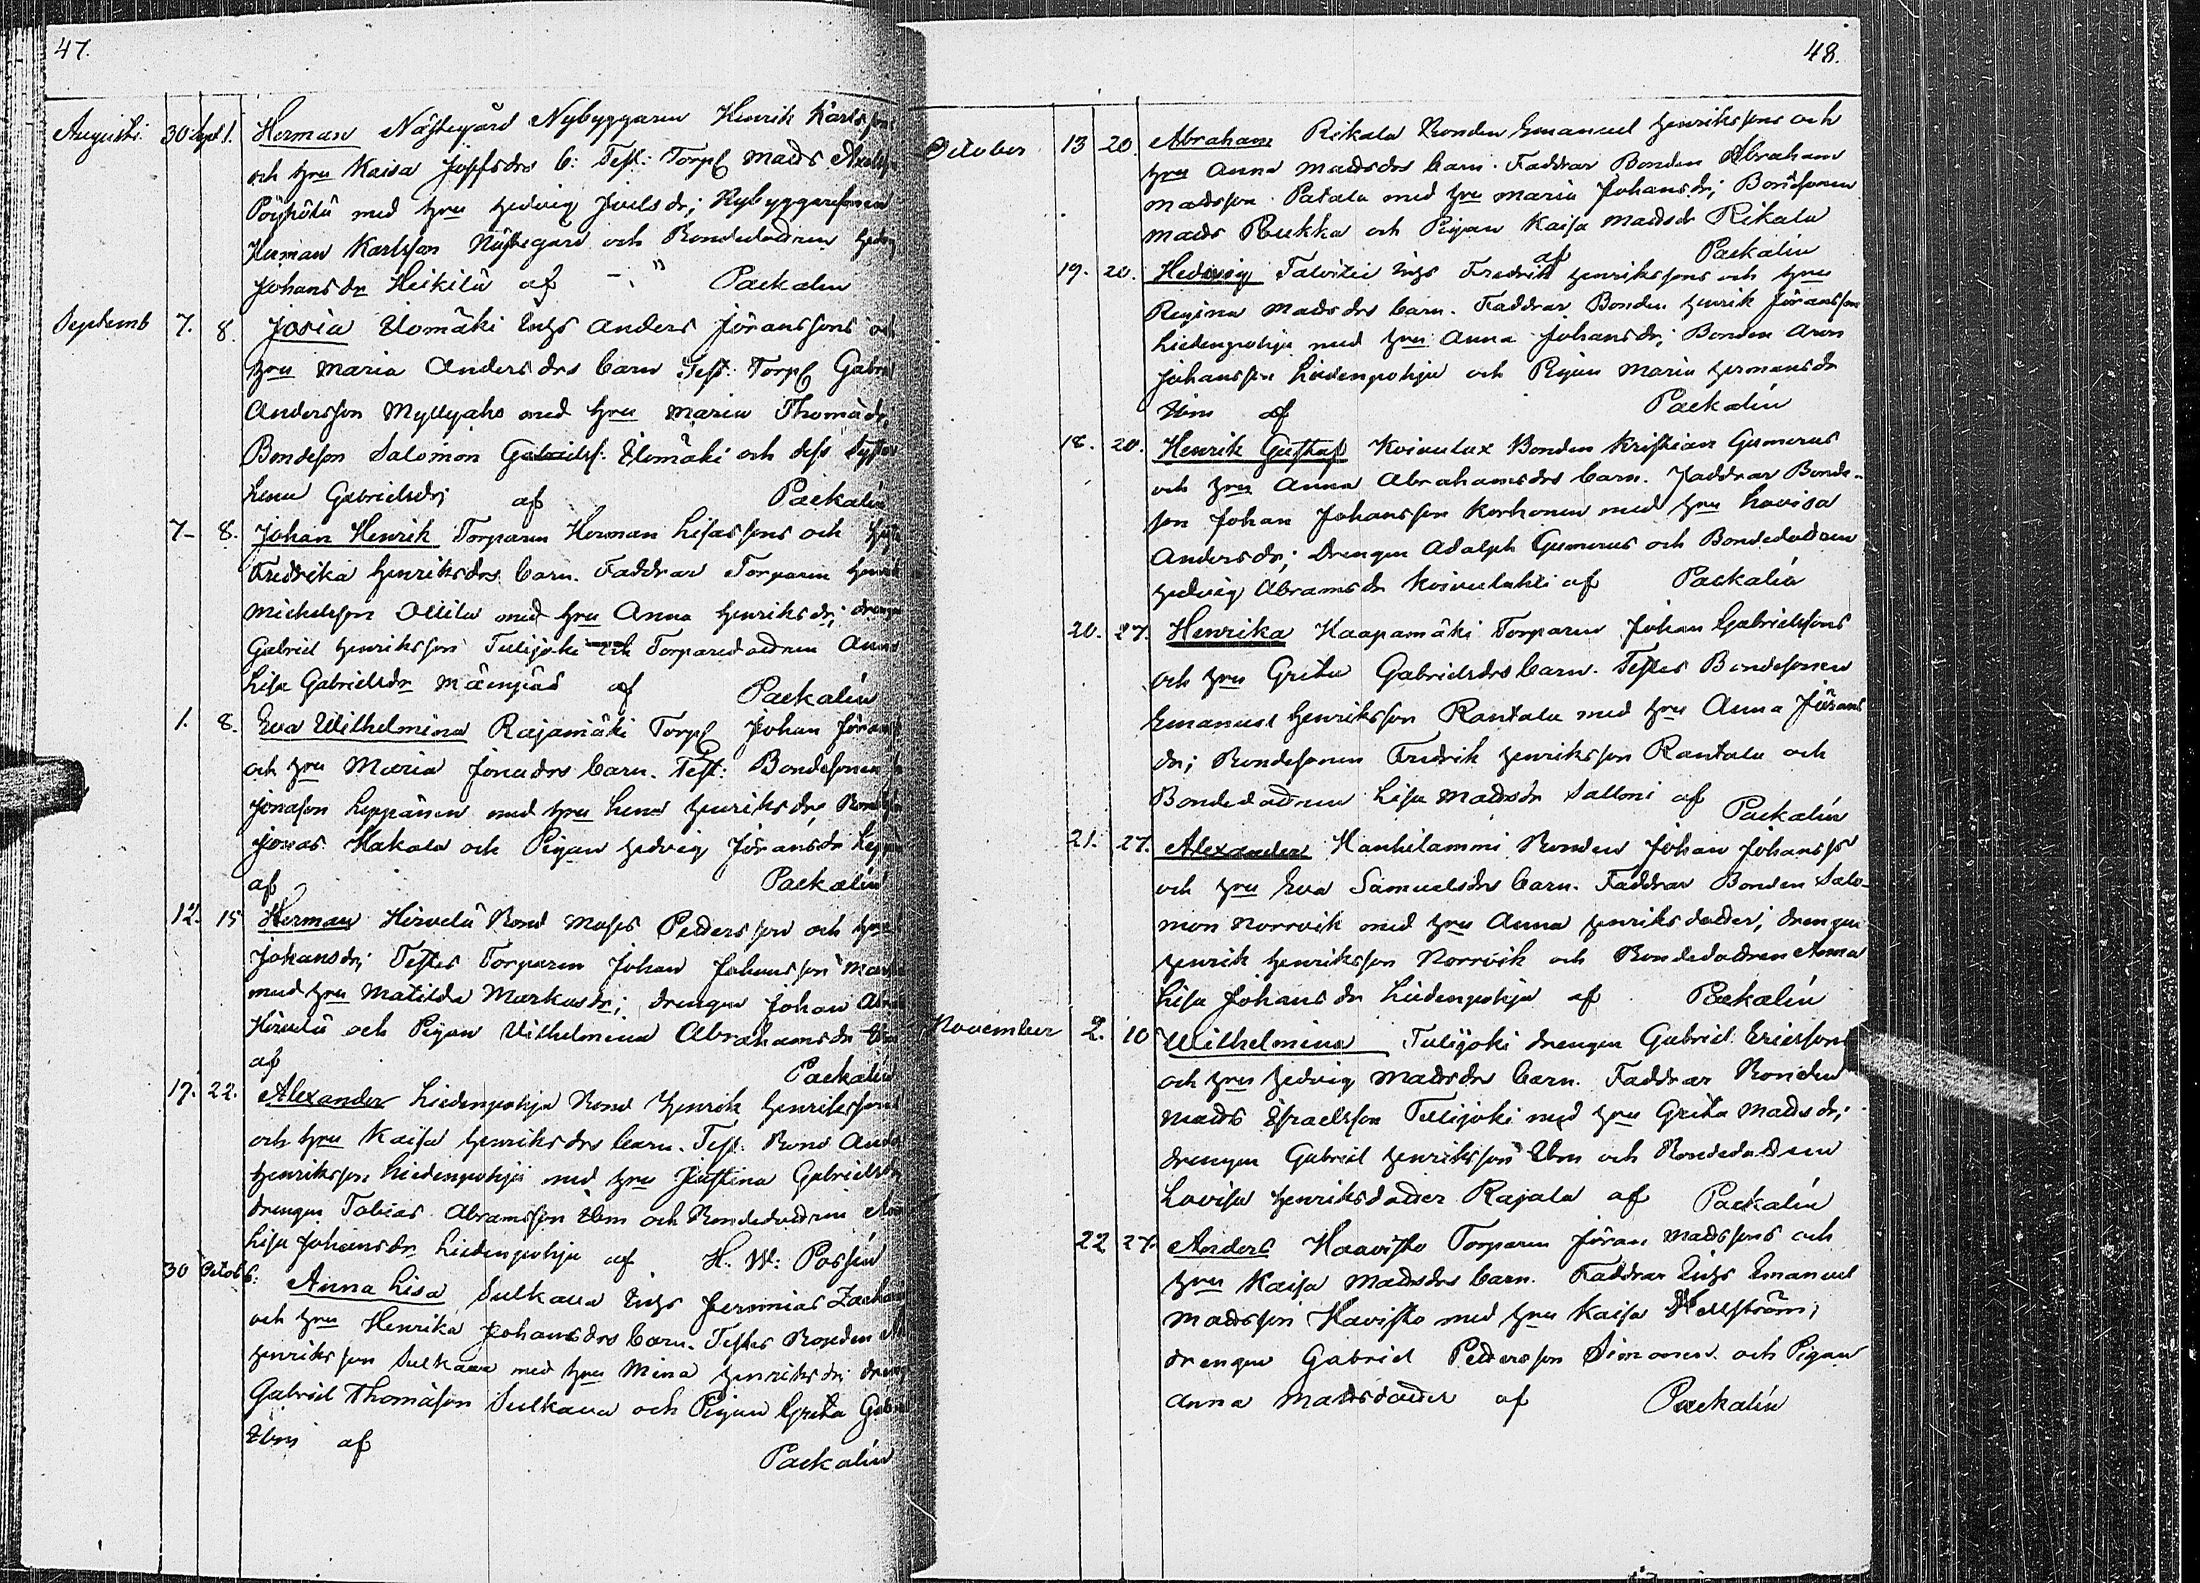 47.
Augusti. 30 Sept 1. Herman Nästegård Nybyggaren Henrik Karlssons
och hru Kaisa Josefsdrs b: Test: Torp Matts
Pöyhölä med hru Hedvig Joelsdr; Nybyggaresonen
Herman Karlsson Nästegård och Bondedottren
Johansdr Heikilä af Packalén
Septemb 7. 8. Josia Ylomäki Inhs Anders Jöranssons och
hru Maria Andersdrs barn Test: Torp Gabriel
Andersson Myllyaho med hru Maria Thomädr,
Bondeson Salomon Gabrielss. Ylomäki och dess Syster
Lena Gabrielsdr; af Packalén
7- 8. Johan Henrik Torparen Herman Lisassons och
Fredrika Henriksdrs barn. Faddrar Torparen Henrik
Michelsson Ollila med hru Anna Henriksdr; drengen
Gabriel Henriksson Tulijoki och Torparedottren Anna
Lisa Gabrielsdr Mäenpää af Packalén
1. 8. Eva Wilhelmina Rajamäki Torp Johan
och hru Maria Jonadrs barn. Test: Bondesonen
Jonasson Leppänen med hru Lena Henriksdr,
Jonas Hakala och Pigan Hedvig Jöransdr
af Packalén
12. 15 Herman Hirvelä Bond Moses Pettersson och
Johansdr; Testes Torparen Johan Johansson
med hru Matilda Markusdr; drengen Johan
Hirvelä och Pigan Vilhelmina Abrahamsdr
af Packalén
17. 22. Alexander Liedenpohja Bond Henrik Henrikssons
och hru Kaisa Henriksdrs barn. Test: Bond
Henriksson Liedenpohja med hru Justina Gabrielsdr
drengen Tobias Abramsson Ibm och Bondedottren
Lisa Johansdr Liedenpohja af H. W: Possén
30 Octob 6: Anna Lisa Sulkava Inhs Jeremias
och hru Henrika Johansdrs barn. Testes Bonden
Henriksson Sulkava med hru Mina Henriksdr;
Gabriel Thomäson Sulkava och Pigan Greta
Ibm af
Packalén
48.
October 13 20. Abraham Rikala Bonden Emanuel Henrikssons och
hru Anna Mattsdrs barn. Faddrar Bonden Abraham
Mattsson Patala med hru Maria Johansdr; Bondsonen
Matts Pukka och Pigan Kaisa Mattsdr Rikala
af Packalén
19. 20. Hedvig Talvitie Inhs Fredrik Henrikssons och hru
Regina Mattsdrs barn. Faddrar Bonden Henrik Jöransson
Liedenpohja med hru Anna Johansdr; Bonden Aron
Johansson Liedenpohja och Pigan Maria Hermansdr
Ibm af Packalén
18. 20. Henrik Gustaf Koivulax Bonden Kristian Gumerus
och hru Anna Abrahamsdrs barn. Faddrar Bonde-
son Johan Johansson Korhonen med hru Lovisa
Andersdr; Drengen Adolph Gumerus och Bondedottren
Hedvig Abramsdr Koivulahti af Packalén
20. 27. Henrika Haapamäki Torparen Johan Gabrielssons
och hru Greta Gabrielsdrs barn. Testes Bondesonen
Emanuel Henriksson Rantala med hru Anna Jörans
dr; Bondesonen Fredrik Henriksson Rantala och
Bondedottren Lisa Mattsdr Salloni af Packalén
21. 27. Alexander Hanhilammi Bonden Johan Johanss
och hru Eva Samuelsdrs barn. Faddrar Bonden Salo-
mon Norrvik med hru Anna Henriksdotter; drengen
Henrik Henriksson Norrvik och Bondedottren Anna
Lisa Johansdr Liedenpohja af Packalén
November 2. 10 Wilhelmina Tulijoki drengen Gabriel Ericssons
och hru Hedvig Mattsdrs barn. Faddrar Bonden
Matts Esraelsson Tulijoki med hru Greta Mattsdr;
drengen Gabriel Henriksson Ibm och Bondedottren
Lovisa Henriksdotter Rajala af Packalén
22 24. Anders Haavisto Torparen Jöran Mattssons och
hru Kaisa Mattsdrs barn. Faddrar Inhs Emanuel
Mattsson Havisto med hru Kaisa Hellström;
drengen Gabriel Pettersson Simonen och Pigan
Anna Mattsdotter af Packalén